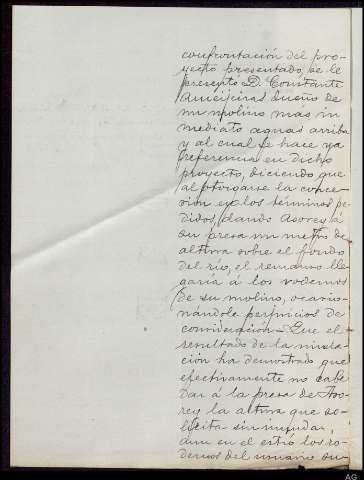 confrontación del pro-
yecto presentado, se le
presento D. Constante
Ameijeiras dueño de
un molino mas in
mediato aguas arriba
y al cual se hace ya
referencia en dicho
proyecto, diciendo que
al otorgarse la conce-
sion en los términos pe-
didos, dando Asorey á
su presa un metro de
altura sobre el fondo
del río, el remanso lle
garía á los rodemos
de su molino, ocasio-
nándole perjuicios de
consideración. Que el
resultado de la nivela-
ción ha demostrado que
efectivamente no cabe
dar á la presa de Aso-
rey la altura que so-
licita sin inundar,
aun en el estío los ro-
demos del usuario su-
AG